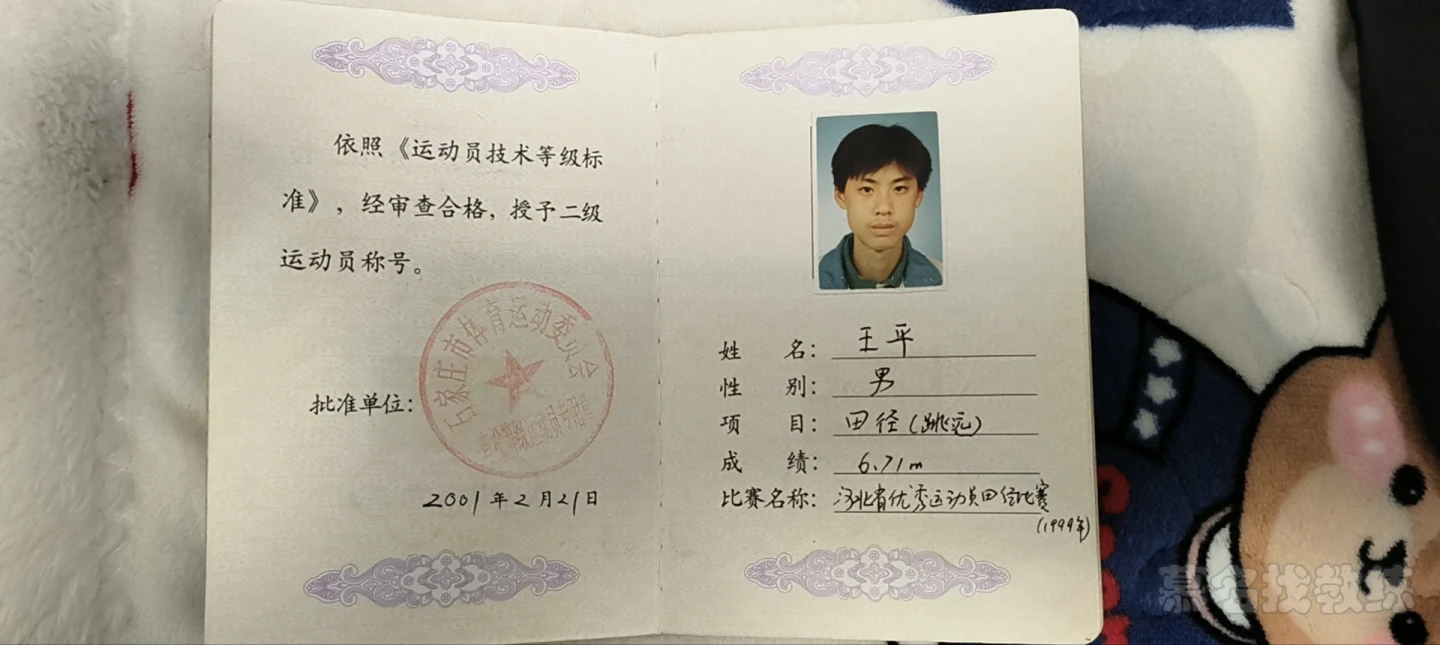 依照《运动员技术等级标
准》，经审查合格，授予二级
运动员称号。
石家庄市体育运动委员会
批准单位：
2001年2月21日
姓 名：王平
性 别：男
项 目：田径（跳远）
成 绩：6.71m
比赛名称：河北省优秀运动员田径比赛
（1999年）
慕名找教练